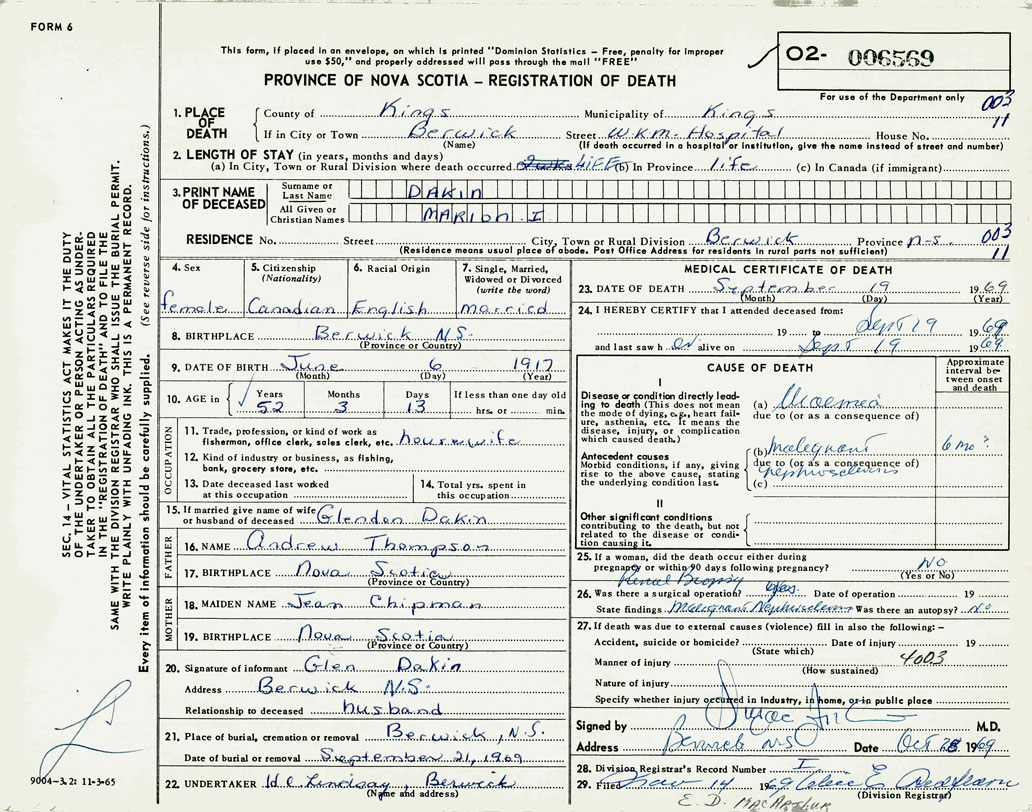 FORM 6
This form, if placed in an envelope, on which is printed "Dominion Statistics – Free, penalty for improper
use $50," and properly addressed will pass through the mail "FREE"
PROVINCE OF NOVA SCOTIA – REGISTRATION OF DEATH
O2- 006569
For use of the Department only 003
11
1. PLACE OF DEATH
County of Kings Municipality of Kings
If in City or Town Berwick Street W.K.M. Hospital House No.
(Name) (If death occurred in a hospital or institution, give the name instead of street and number)
2. LENGTH OF STAY (in years, months and days)
(a) In City, Town or Rural Division where death occurred LIFE (b) In Province life (c) In Canada (if immigrant)
3. PRINT NAME OF DECEASED
Surname or Last Name DAKIN
All Given or Christian Names MARION I.
RESIDENCE No. Street City, Town or Rural Division Berwick Province N.S. 003
(Residence means usual place of abode. Post Office Address for residents in rural parts not sufficient) 11
4. Sex female
5. Citizenship (Nationality) Canadian
6. Racial Origin English
7. Single, Married, Widowed or Divorced (write the word) married
8. BIRTHPLACE Berwick N.S.
(Province or Country)
9. DATE OF BIRTH June 6 1917
(Month) (Day) (Year)
10. AGE in Years Months Days If less than one day old
52 3 13 hrs. or min.
OCCUPATION
11. Trade, profession, or kind of work as
fisherman, office clerk, sales clerk, etc. housewife
12. Kind of industry or business, as fishing,
bank, grocery store, etc.
13. Date deceased last worked
at this occupation
14. Total yrs. spent in
this occupation
15. If married give name of wife
or husband of deceased Glendon Dakin
FATHER
16. NAME Andrew Thompson
17. BIRTHPLACE Nova Scotia
(Province or Country)
MOTHER
18. MAIDEN NAME Jean Chipman
19. BIRTHPLACE Nova Scotia
(Province or Country)
20. Signature of informant Glen Dakin
Address Berwick N.S.
Relationship to deceased husband
21. Place of burial, cremation or removal Berwick, N.S.
Date of burial or removal September 21, 1969
22. UNDERTAKER Lindsay, Berwick
(Name and address)
MEDICAL CERTIFICATE OF DEATH
23. DATE OF DEATH September 19 1969
(Month) (Day) (Year)
24. I HEREBY CERTIFY that I attended deceased from:
19 to Sept 19 1969
and last saw h er alive on Sept 19 1969
CAUSE OF DEATH
Approximate interval between onset and death
I
Disease or condition directly leading
to death (This does not mean
the mode of dying, e.g., heart failure,
asthenia, etc. It means the
disease, injury, or complication
which caused death.)
(a) Uraemia
due to (or as a consequence of)
Antecedent causes
Morbid conditions, if any, giving
rise to the above cause, stating
the underlying condition last.
(b) malignant 6 mo?
due to (or as a consequence of)
nephrosclerosis
(c)
II
Other significant conditions
contributing to the death, but not
related to the disease or condition
causing it.
25. If a woman, did the death occur either during
pregnancy or within 90 days following pregnancy? NO
(Yes or No)
Renal Biopsy
26. Was there a surgical operation? yes Date of operation 19
State findings Malignant Nephrosclerosis Was there an autopsy? No
27. If death was due to external causes (violence) fill in also the following: –
Accident, suicide or homicide? Date of injury 19
(State which)
Manner of injury 4003
(How sustained)
Nature of injury
Specify whether injury occurred in Industry, in home, or in public place
Signed by M.D.
Address Berwick N.S. Date Oct 28 1969
28. Division Registrar's Record Number I
29. Filed Nov 14 1969
(Division Registrar)
E. D. MacArthur
SEC. 14 – VITAL STATISTICS ACT MAKES IT THE DUTY
OF THE UNDERTAKER OR PERSON ACTING AS UNDER-
TAKER TO OBTAIN ALL THE PARTICULARS REQUIRED
IN THE "REGISTRATION OF DEATH" AND TO FILE THE
SAME WITH THE DIVISION REGISTRAR WHO SHALL ISSUE THE BURIAL PERMIT.
WRITE PLAINLY WITH UNFADING INK. THIS IS A PERMANENT RECORD.
Every item of information should be carefully supplied. (See reverse side for instructions.)
9004-3.2: 11-3-65